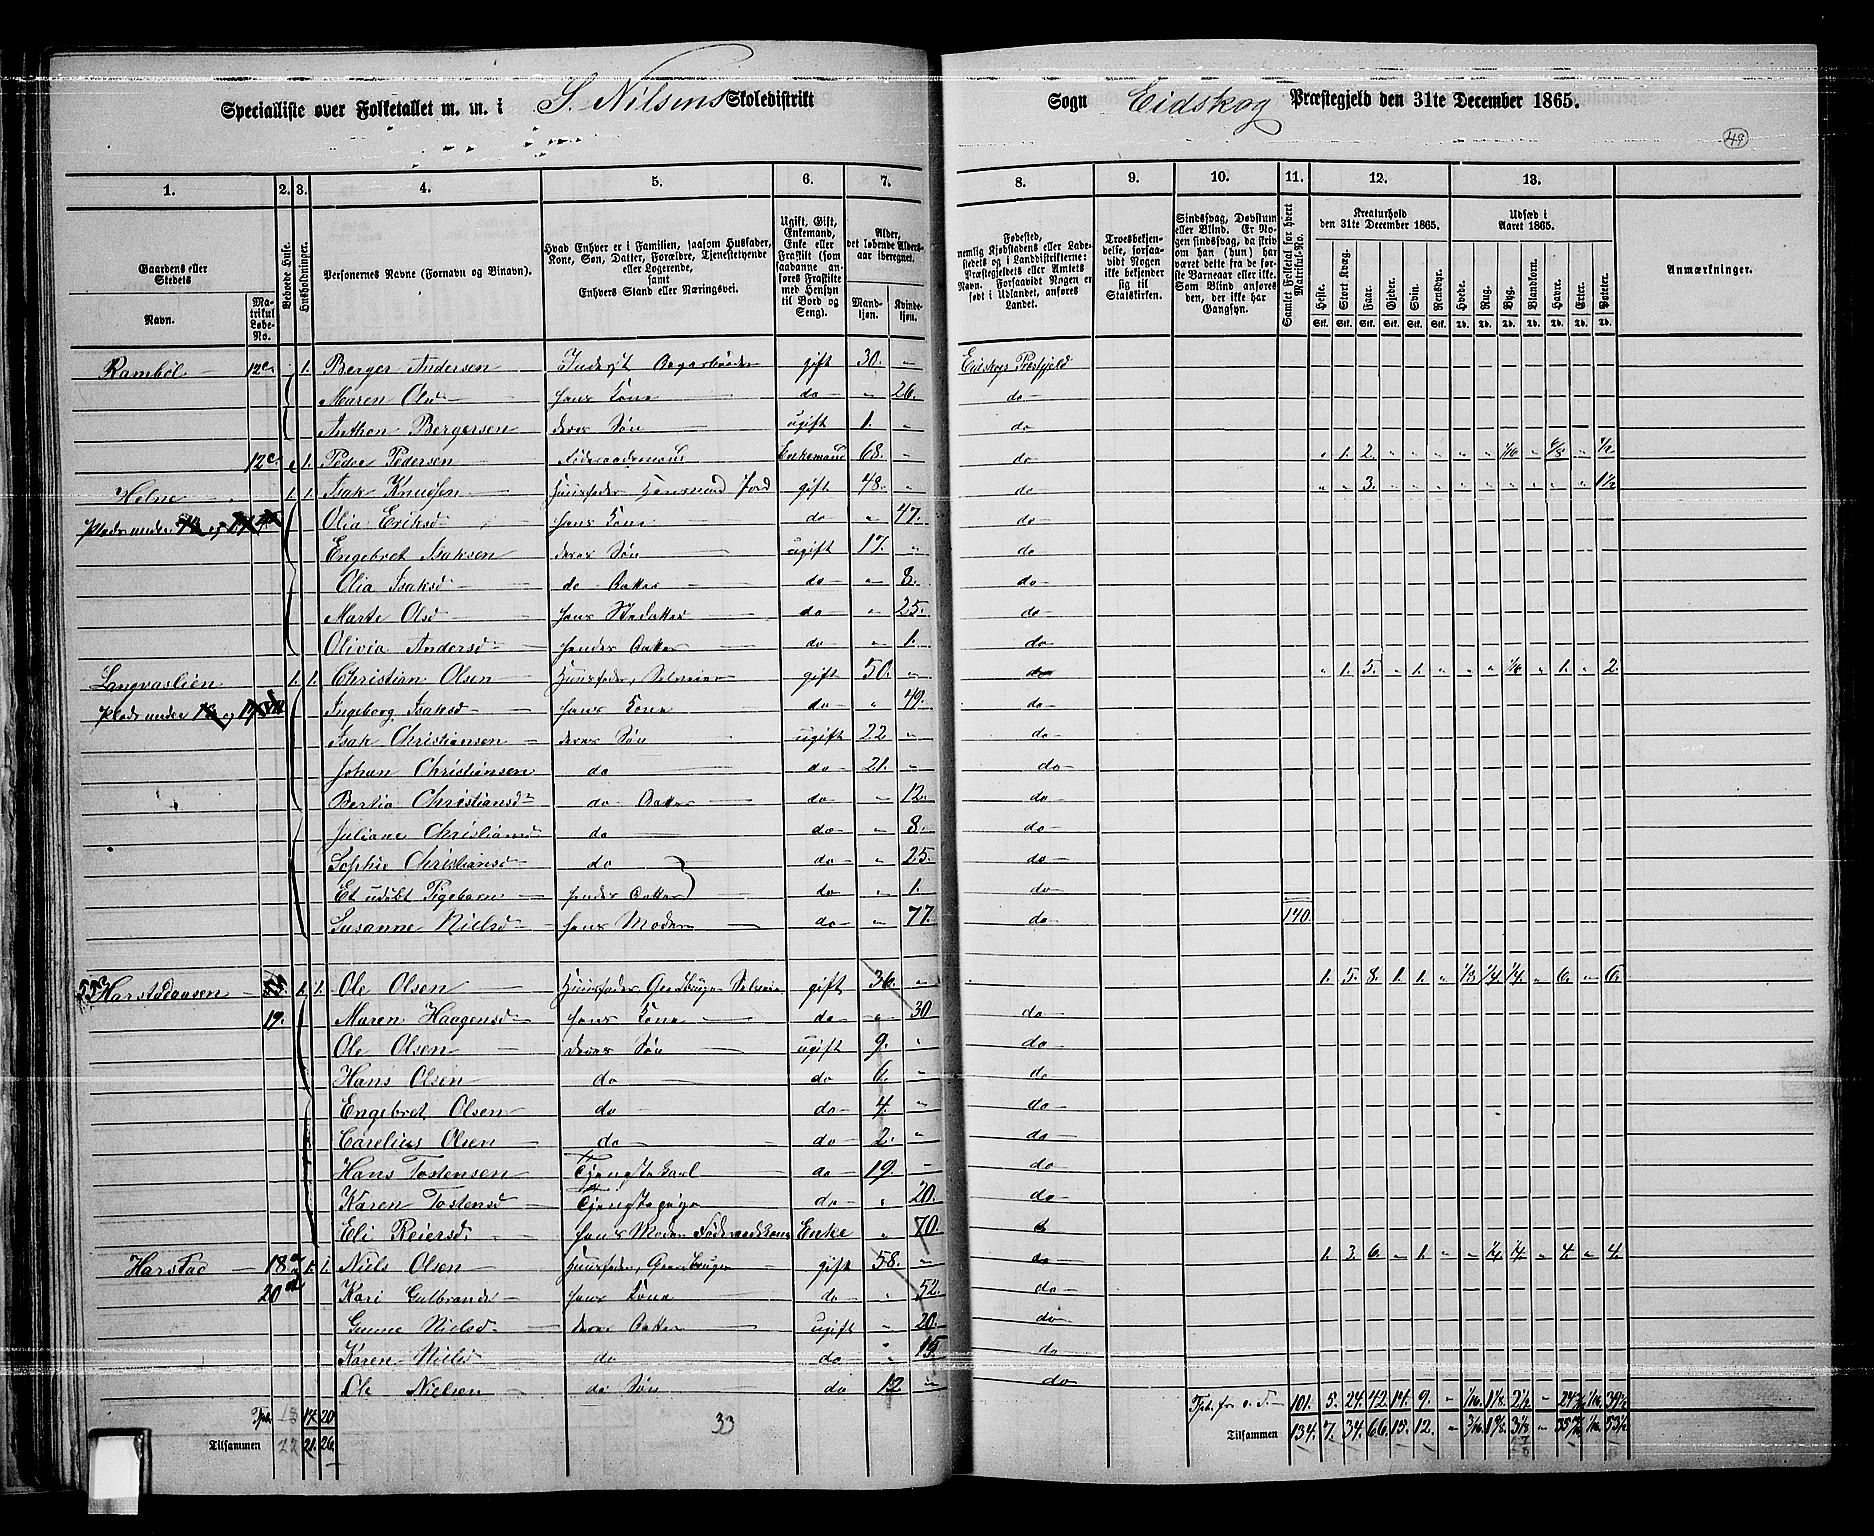 Specialliste over Folketallet m. m. i S. Nilsens Skoledistrikt Sogn Eidskog Præstegjeld den 31te December 1865.
49
1. 2. 3. 4. 5. 6. 7. 8. 9. 10. 11. 12. 13.
Gaardens eller Stedets Navn. Matrikul Løbe-No.
Beboede Huse.
Husholdninger.
Personernes Navne (Fornavn og Binavn).
Hvad Enhver er i Familien, saasom Husfader, Kone, Søn, Datter, Forældre, Tjenestetyende eller Logerende, samt Enhvers Stand eller Næringsvei.
Ugift, Gift, Enkemand, Enke eller Fraskilt (som saadanne anføres Fraskilte med Hensyn til Bord og Seng).
Alder, det løbende Alders-aar iberegnet. Mandkjøn. Kvindekjøn.
Fødested, nemlig Kjøbstadens eller Ladestedets og i Landdistrikterne: Præstegjeldets eller Amtets Navn. Forsaavidt Nogen er født i Udlandet, anføres Landet.
Troesbekjendelse, forsaavidt Nogen ikke bekjender sig til Statskirken.
Sindssvag, Døvstum eller Blind. Er Nogen sindssvag, da skriv om han (hun) har været dette fra de første Barneaar eller ikke. Som Blind anføres den, der ikke har Gangsyn.
Samlet Folketal for hvert Matrikul-No.
Kreaturhold den 31te December 1865. Heste. Stort Kvæg. Faar. Gjeder. Svin. Rensdyr.
Udsæd i Aaret 1865. Hvede. Rug. Byg. Blandkorn. Havre. Erter. Poteter.
Anmærkninger.
Rambøl 12e 1. Berger Andersen gift 30. Eidskog Præstgjeld
Maren Olsd hans Kone do 26. do
Anthon Bergersen deres Søn ugift 1. do
12e. 1. Peder Pedersen Føderaadsmand Enkemand 68. do 1. 2.
1. 1. Isak Knudsen Huusfader Huusmand Jord gift 48. do 3. 1½
Pladsunder
Olia Eriksd hans Kone do 47. do
Engebret Isaksen deres Søn ugift 17. do
Olia Isaksd do Datter do 8. do
Marte Olsd hans do 25. do
Olivia Andersd hendes Datter do 1. do
Langvaslien 1. 1. Christian Olsen Huusfader, Selveier gift 50. do 1. 5. 1. 1. 2.
Plads under
Ingeborg Isaksd hans Kone do 49. do
Isak Christiansen deres Søn ugift 22 do
Johan Christiansen do do 21. do
Bertia Christiansd do Datter do 12. do
Juliane Christiansd do do 8. do
Sophie Christiansd do do 25. do
Et udøbt Pigebarn hendes Datter do 1. do
Susanne Nielsd hans Moder do 77. do 140.
Harstadaasen 1. 1. Ole Olsen Huusfader Gaardbruger Selveier gift 36. 1. 5. 8. 1. 1. 1/8 1/4 1/4 6. 6.
19. Maren Haagensd hans Kone do 30 do
Ole Olsen deres Søn ugift 9. do
Hans Olsen do do 6. do
Engebret Olsen do do 4. do
Carelius Olsen do do 2. do
Hans Tostensen Tjenestekarl do 19. do
Karen Tostensd Tjenestepige do 20. do
Eli Reiersd. hans Moder Føderaadskone Enke 70.
Harstad 18a 1. 1. Niels Olsen Huusfader, Gaardbruger gift 58. do 1. 3. 6. 1. 1/4 1/4 4. 4.
20d Kari Gulbrandsd hans Kone do 52. do
Gunne Nielsd deres Datter ugift 20. do
Karen Nielsd do do 15. do
Ole Nielsen do Søn do 12 do
17. 20 33 101. 5. 24. 42. 14. 9.
Tilsammen 22 21. 26. Tilsammen 134. 7. 34. 66. 15. 12.